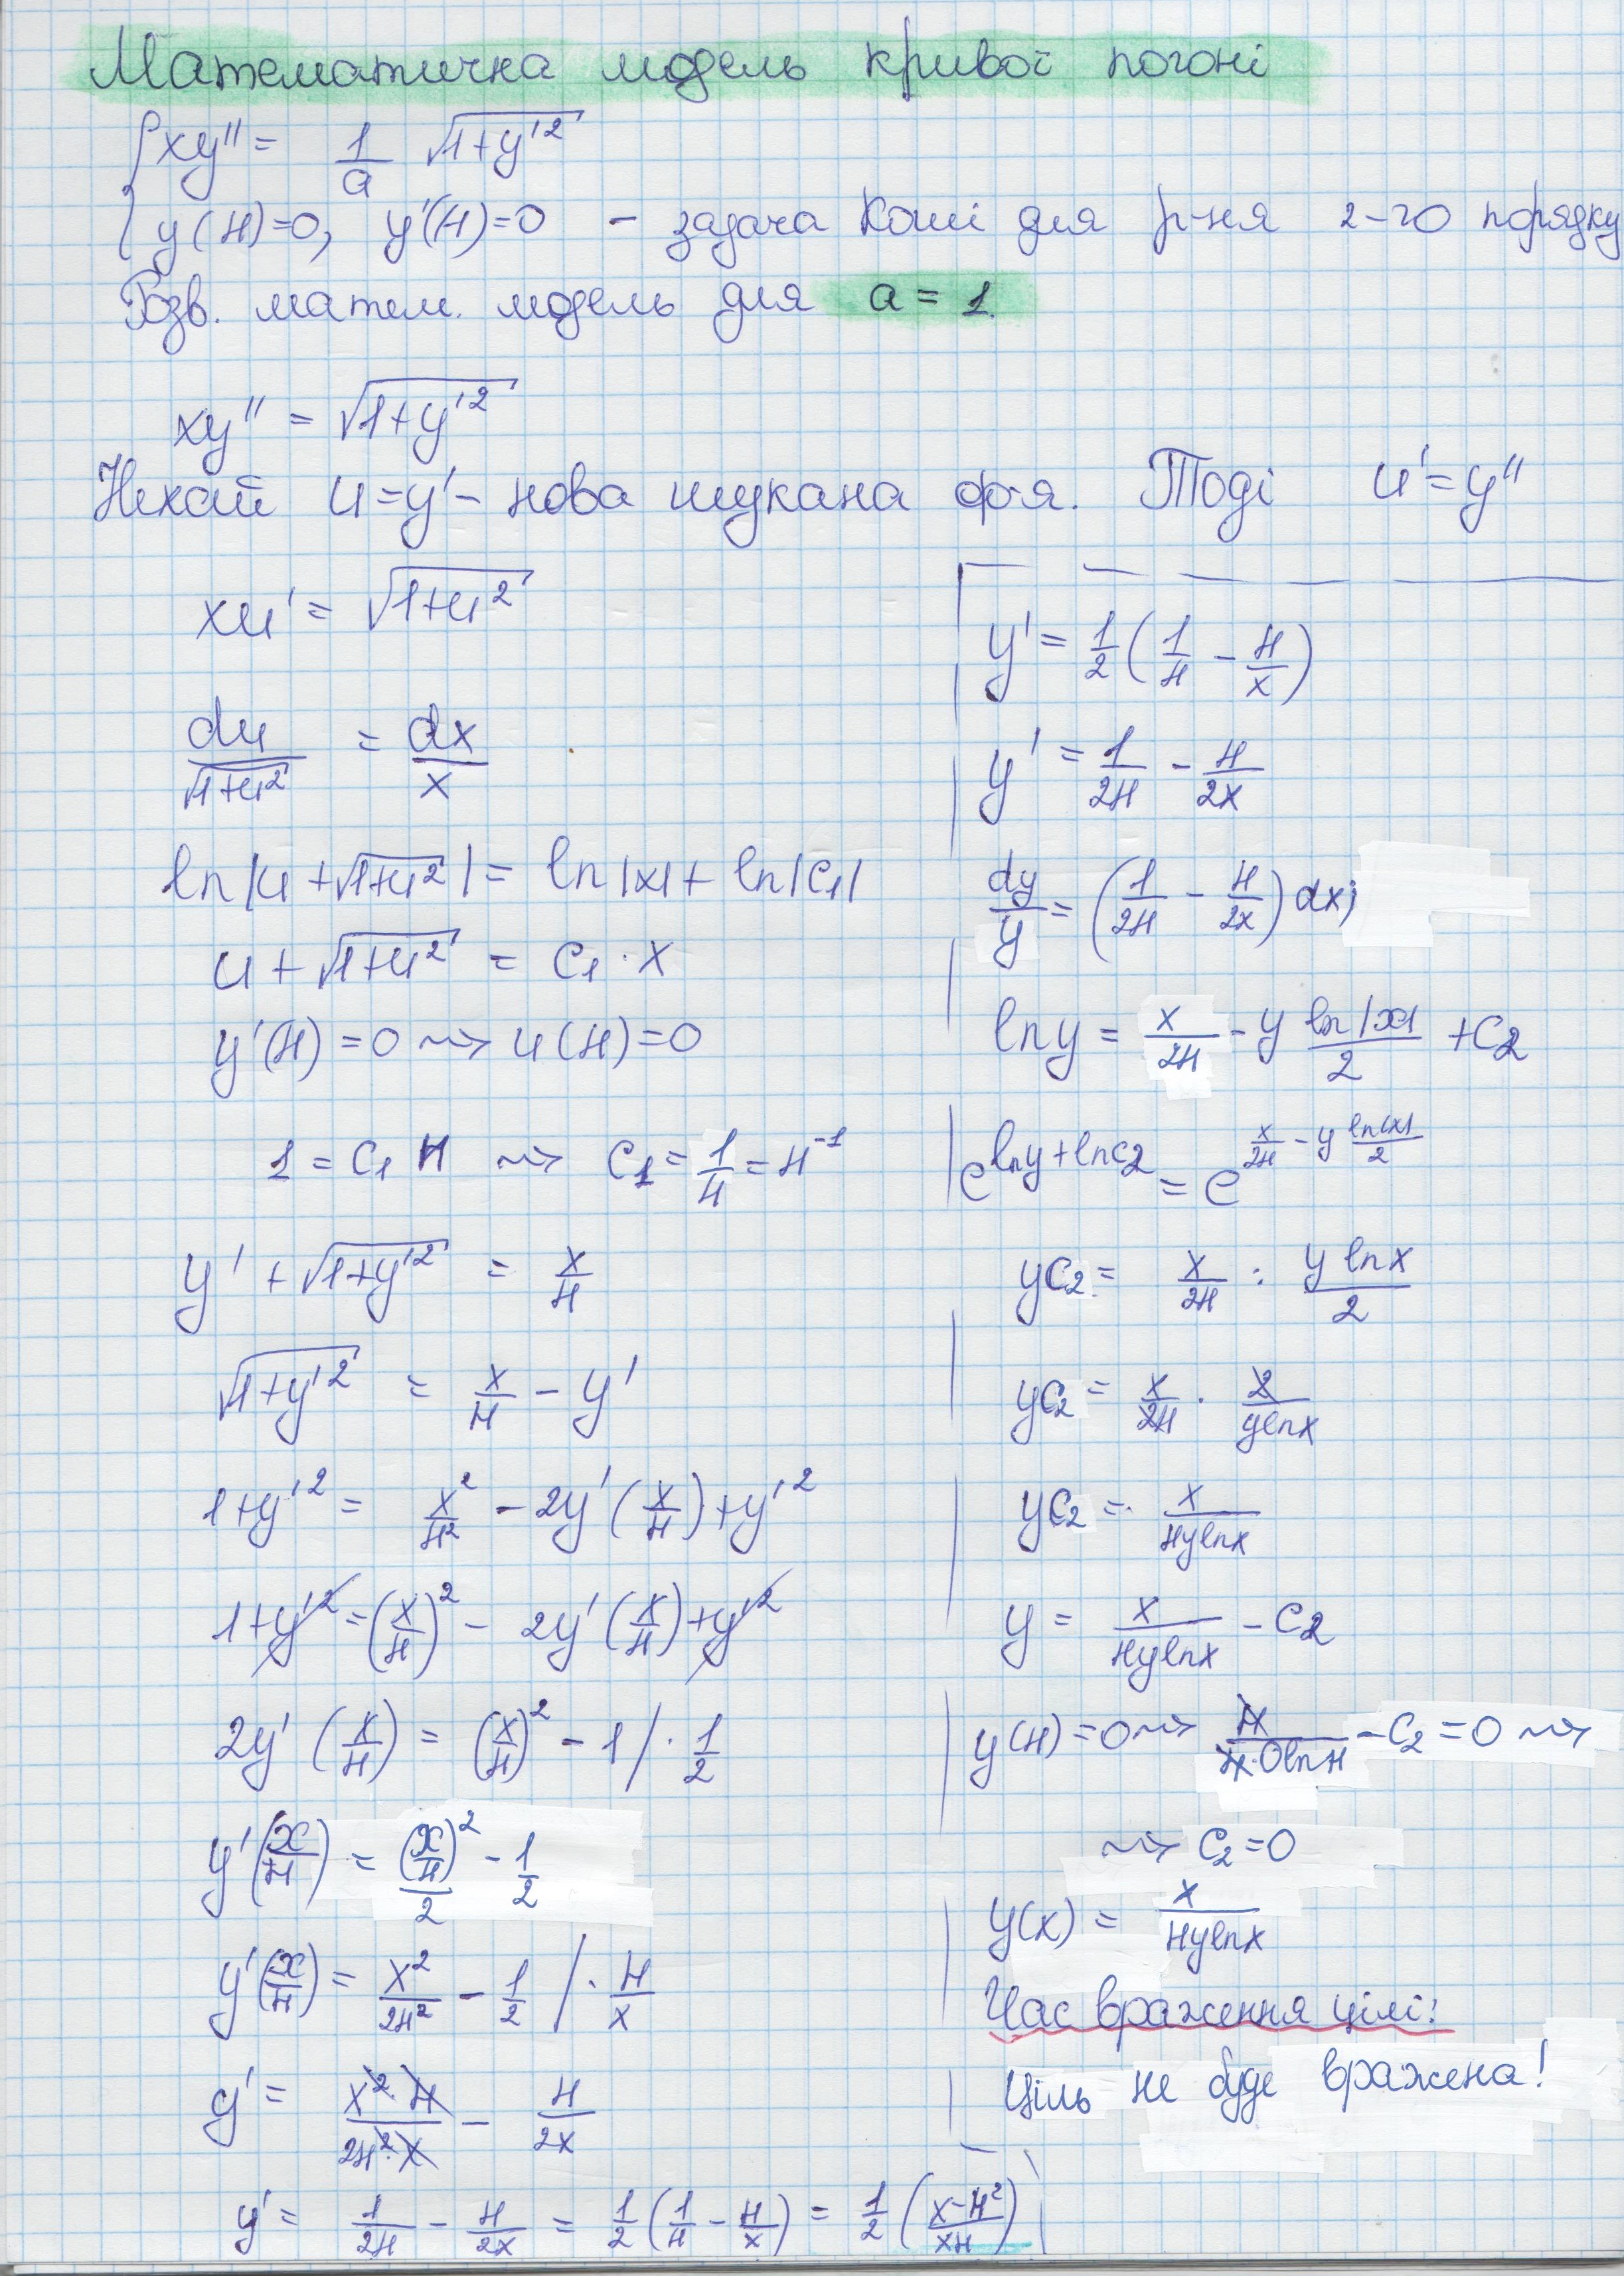 Математична модель кривої погоні
{ xy'' = 1/a √(1+y'²)
{ y(H)=0, y'(H)=0 – задача Коші для р-ня 2-го порядку
Розв. матем. модель для a = 1.
xy'' = √(1+y'²)
Нехай u=y' – нова шукана ф-я. Тоді u'=y''
xu' = √(1+u²)
du/√(1+u²) = dx/x
ln|u+√(1+u²)| = ln|x| + ln|C₁|
u+√(1+u²) = C₁·x
y'(H)=0 ⇝ u(H)=0
1 = C₁H ⇝ C₁ = 1/H = H⁻¹
y' + √(1+y'²) = x/H
√(1+y'²) = x/H – y'
1+y'² = x²/H² – 2y'(x/H)+y'²
1+y'² = (x/H)² – 2y'(x/H)+y'²
2y'(x/H) = (x/H)² – 1 /· 1/2
y'(x/H) = (x/H)²/2 – 1/2
y'(x/H) = x²/2H² – 1/2 /· H/x
y' = x²·H/2H²·x – H/2x
y' = 1/2H – H/2x = 1/2(1/H – H/x) = 1/2(x–H²/xH)
y' = 1/2(1/H – H/x)
y' = 1/2H – H/2x
dy/y = (1/2H – H/2x)dx;
ln y = x/2H – y ln|x|/2 + C₂
e^(ln y+ln C₂) = e^(x/2H – y ln|x|/2)
yC₂ = x/2H : y ln x/2
yC₂ = x/2H · 2/y ln x
yC₂ = x/Hy ln x
y = x/Hy ln x – C₂
y(H)=0 ⇝ H/H·0 ln H – C₂ = 0 ⇝
⇝ C₂=0
y(x) = x/Hy ln x
Час враження цілі:
Ціль не буде вражена!